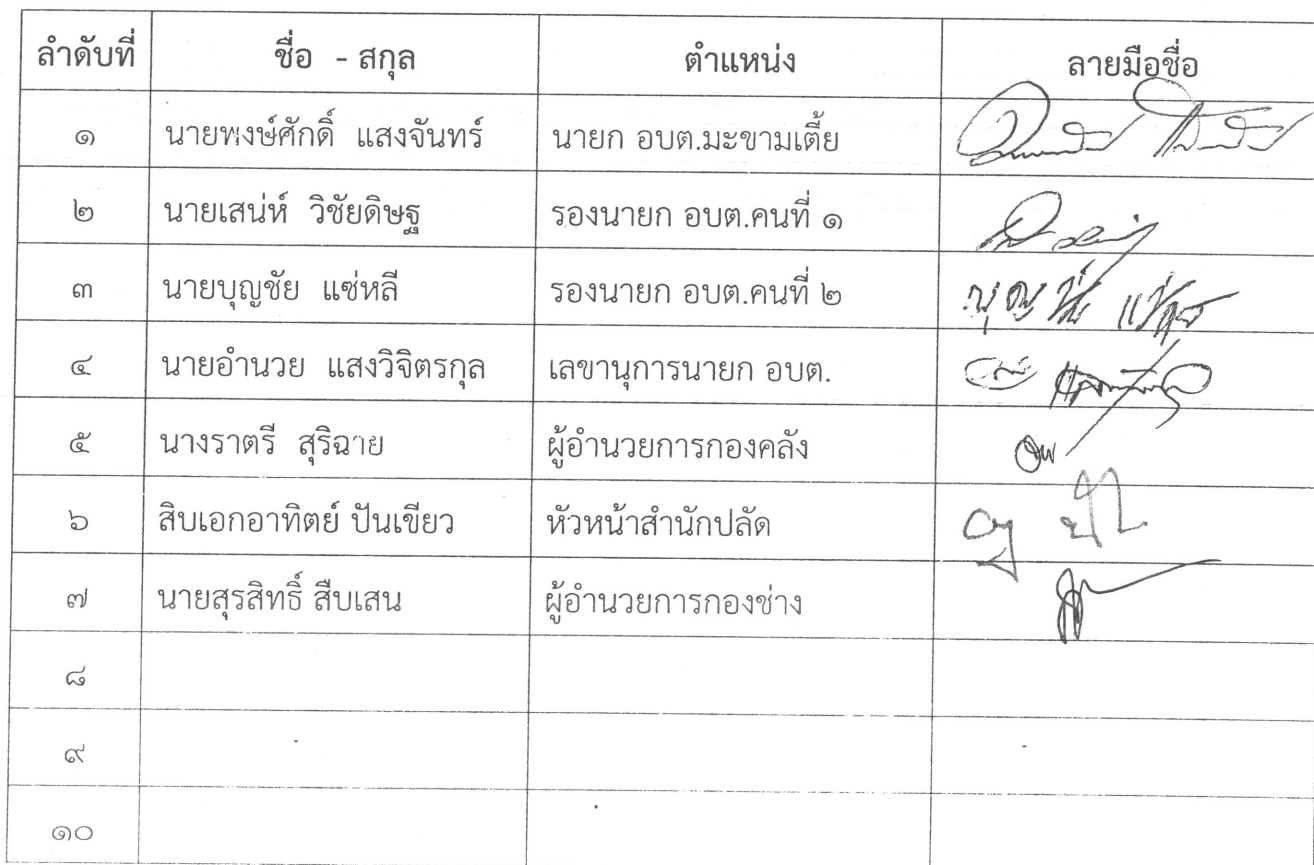 ลำดับที่ ชื่อ - สกุล ตำแหน่ง ลายมือชื่อ
๑ นายพงษ์ศักดิ์ แสงจันทร์ นายก อบต.มะขามเตี้ย
๒ นายเสน่ห์ วิชัยดิษฐ รองนายก อบต.คนที่ ๑
๓ นายบุญชัย แซ่หลี รองนายก อบต.คนที่ ๒ บุญชัย แซ่หลี
๔ นายอำนวย แสงวิจิตรกุล เลขานุการนายก อบต.
๕ นางราตรี สุริฉาย ผู้อำนวยการกองคลัง
๖ สิบเอกอาทิตย์ ปันเขียว หัวหน้าสำนักปลัด
๗ นายสุรสิทธิ์ สืบเสน ผู้อำนวยการกองช่าง
๘
๙
๑๐